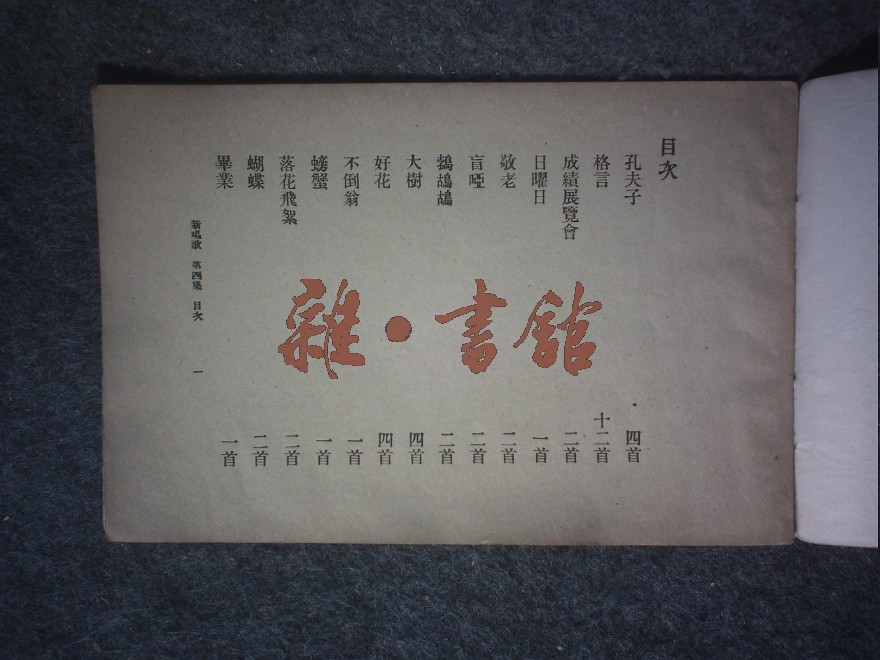 目次
孔夫子 四首
格言 十二首
成績展覽會 二首
日曜日 一首
敬老 二首
盲啞 二首
鵓鴣鴣 二首
大樹 四首
好花 四首
不倒翁 一首
螃蟹 一首
落花飛絮 二首
蝴蝶 二首
畢業 一首
新唱歌 第四集 目次 一
雜·書館